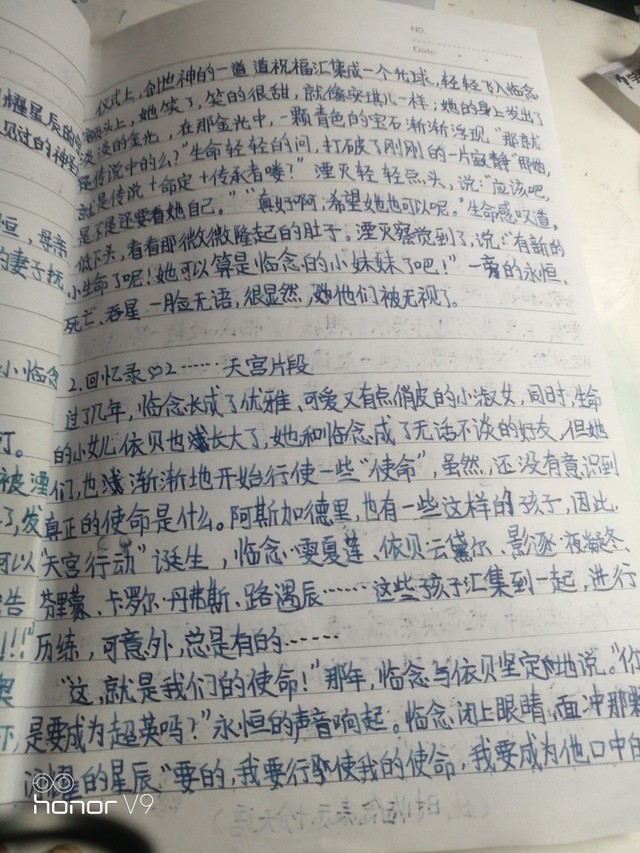 NO.
Date
仪式上,创世神的一道道祝福汇集成一个光球,轻轻飞入临念
额头上,她笑了,笑的很甜,就像安琪儿一样;她的身上发出了
淡淡的金光,在那金光中,一颗青色的宝石渐渐浮现。"那就
是传说中的么?"生命轻轻的问,打破了刚刚的一片寂静"那她,
就是传说+命定+传承者喽?"湮灭轻轻点头,说:"应该吧,
是不是还要看她自己。""真好啊,希望她也可以呢。"生命感叹道,
低下头,看看那微微隆起的肚子。湮灭察觉到了,说:"有新的
小生命了呢!她可以算是临念的小妹妹了吧!"一旁的永恒、
死亡、吞星一脸无语,很显然,他们被无视了。
2.回忆录 2……天宫片段
过了几年,临念长成了优雅、可爱又有点俏皮的小淑女,同时,生命
的小女儿依贝也长大了,她和临念成了无话不谈的好友,但她
们,也渐渐地开始行使一些"使命",虽然,还没有意识到
真正的使命是什么。阿斯加德里,也有一些这样的孩子,因此,
"天宫行动"诞生,临念·雯夏莲、依贝·云黛尔、影逐·夜凝冬、
芬里、卡罗尔·丹弗斯、路遇辰……这些孩子汇集到一起,进行
历练,可意外,总是有的……
"这,就是我们的使命!"那年,临念与依贝坚定地说。"你
是要成为超英吗?"永恒的声音响起。临念闭上眼睛,面冲那
耀的星辰"要的,我要行使我的使命,我要成为他口中的
耀星辰的
见过的神
恒,母亲
的妻子抚
小临念
打。
被湮
了,发
可以
告
!!!"
honor V9